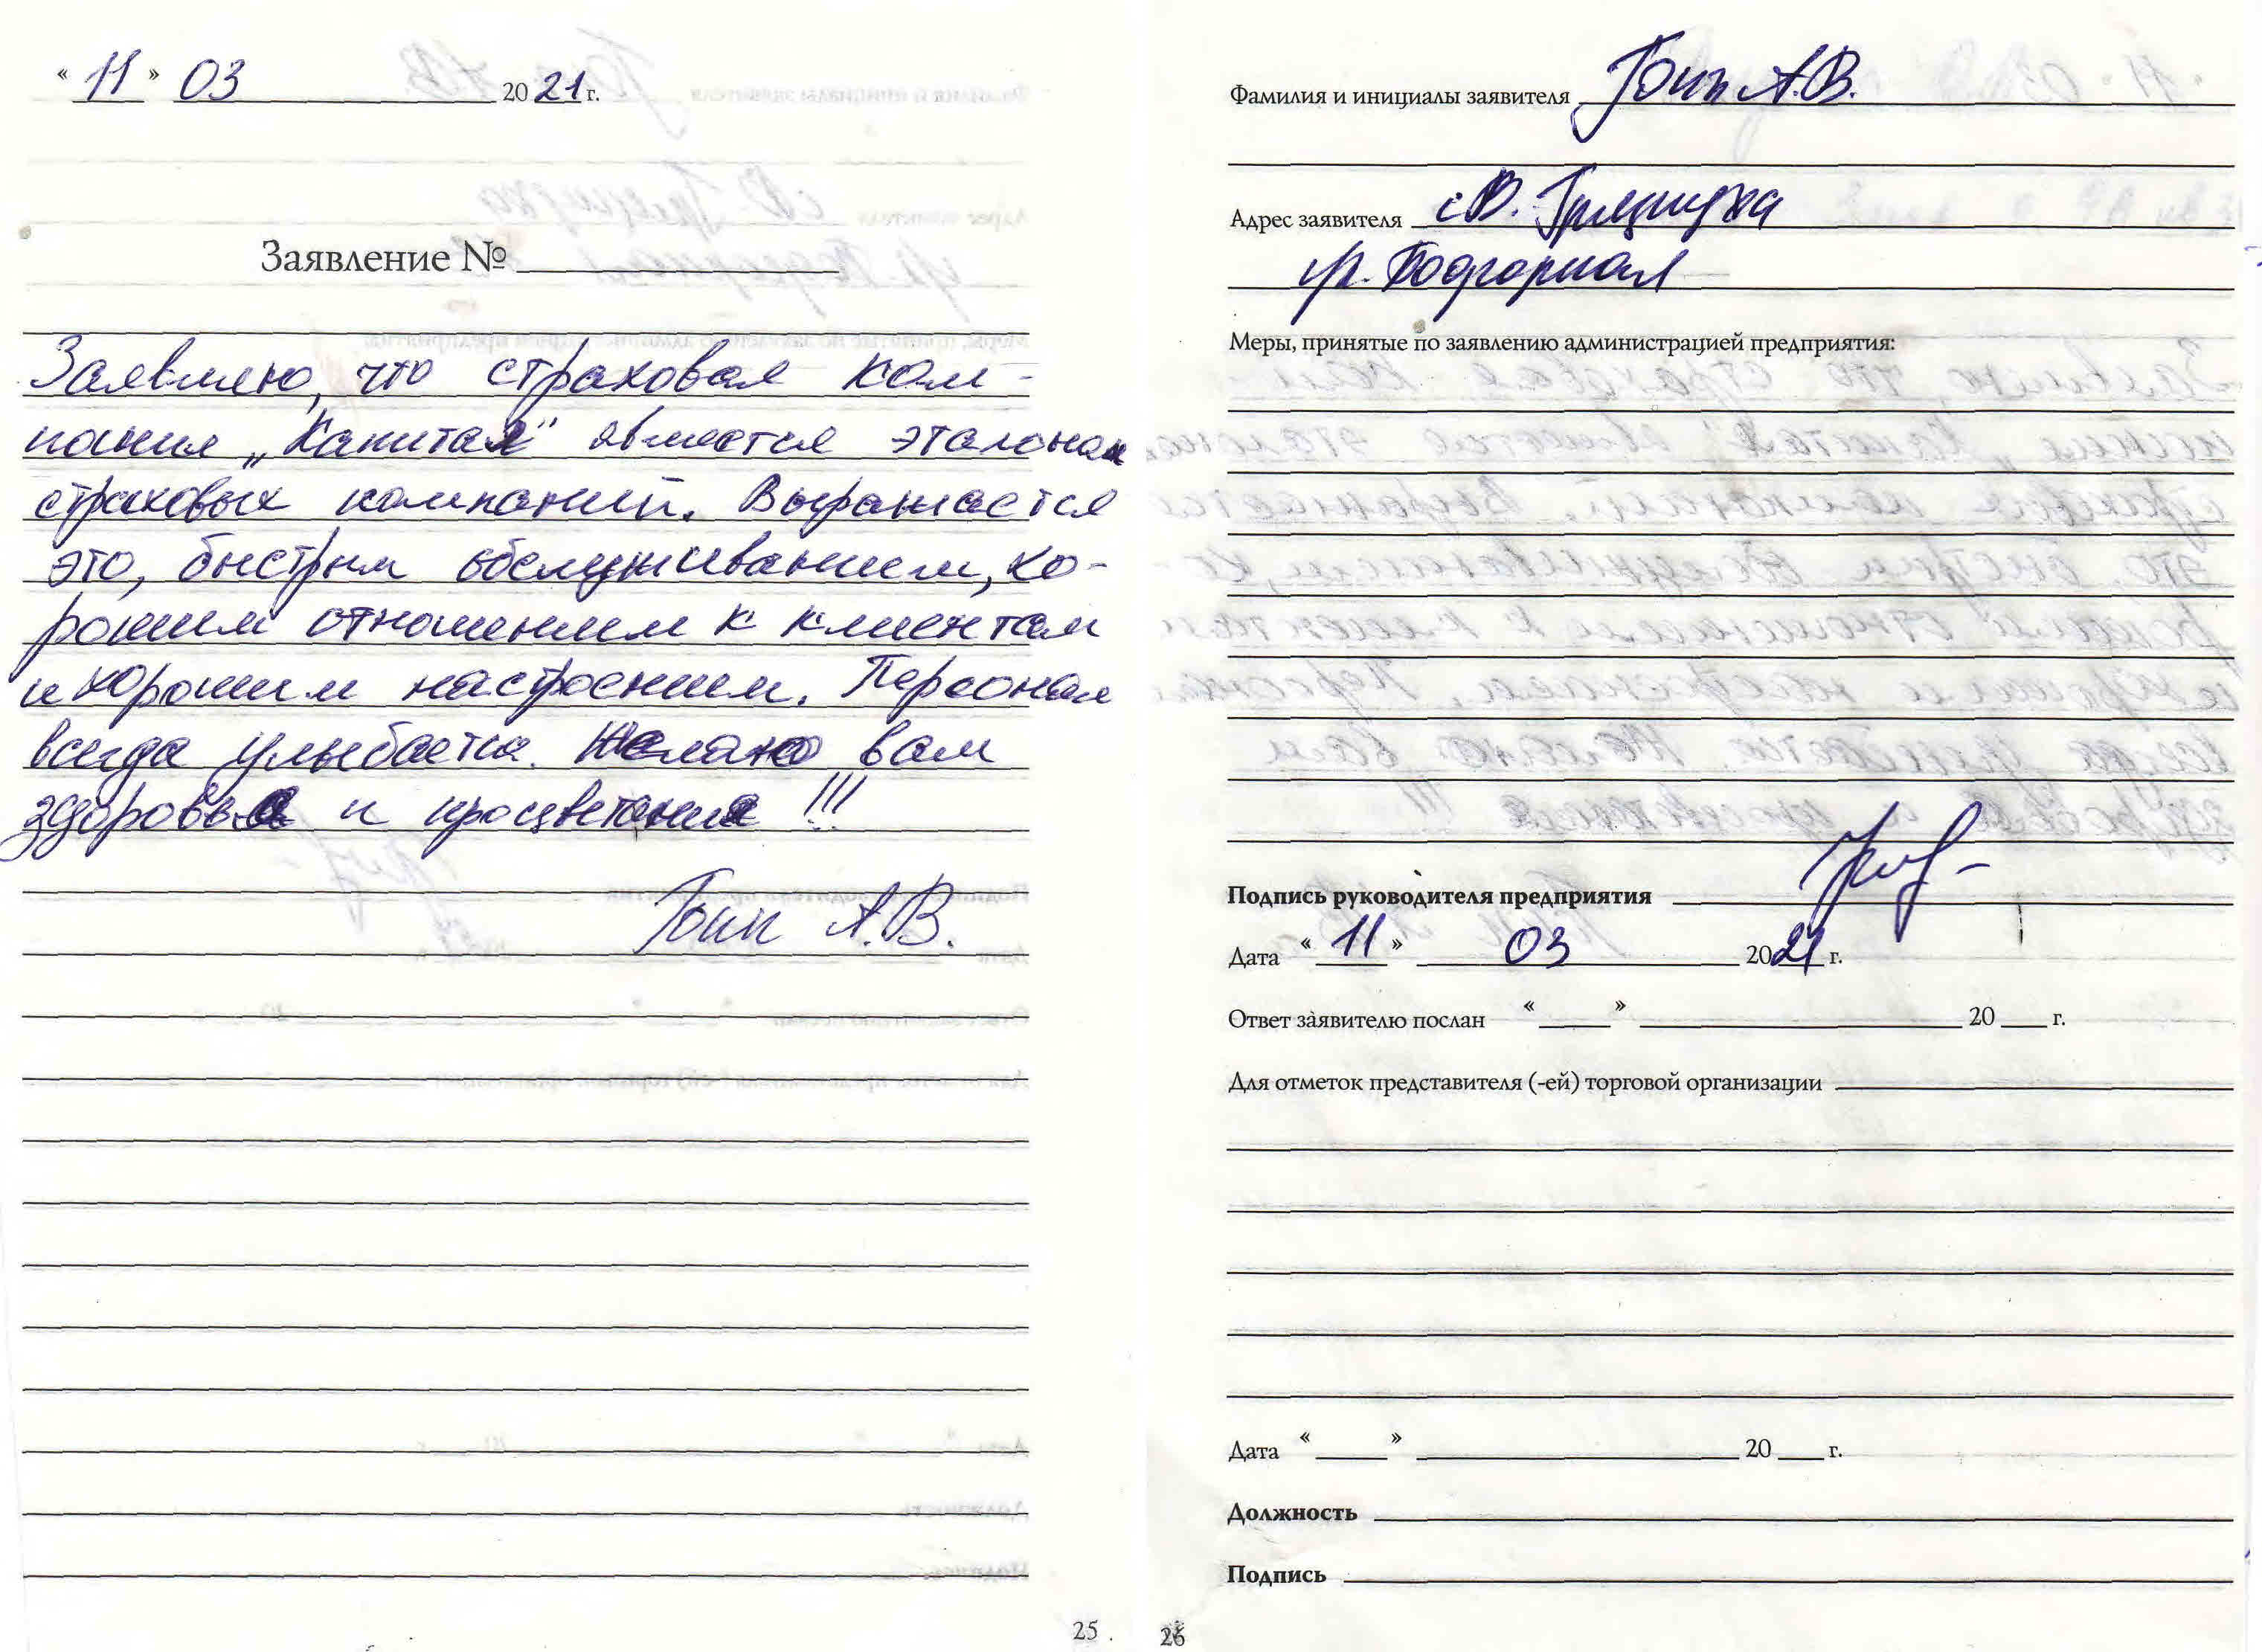 « 11 » 03 2021 г.
Заявление №
Заявляю, что страховая ком-
пания „Капитал" является эталоном
страховых компаний. Выражается
это, быстрым обслуживанием, хо-
рошим отношением к клиентам
и хорошим настроением. Персонал
всегда улыбается. Желаю вам
здоровья и процветания !!!
А.В.
25
Фамилия и инициалы заявителя А.В.
Адрес заявителя
ул. Подгорная
Меры, принятые по заявлению администрацией предприятия:
Подпись руководителя предприятия
Дата « 11 » 03 2021 г.
Ответ заявителю послан « » 20 г.
Для отметок представителя (-ей) торговой организации
Дата « » 20 г.
Должность
Подпись
26